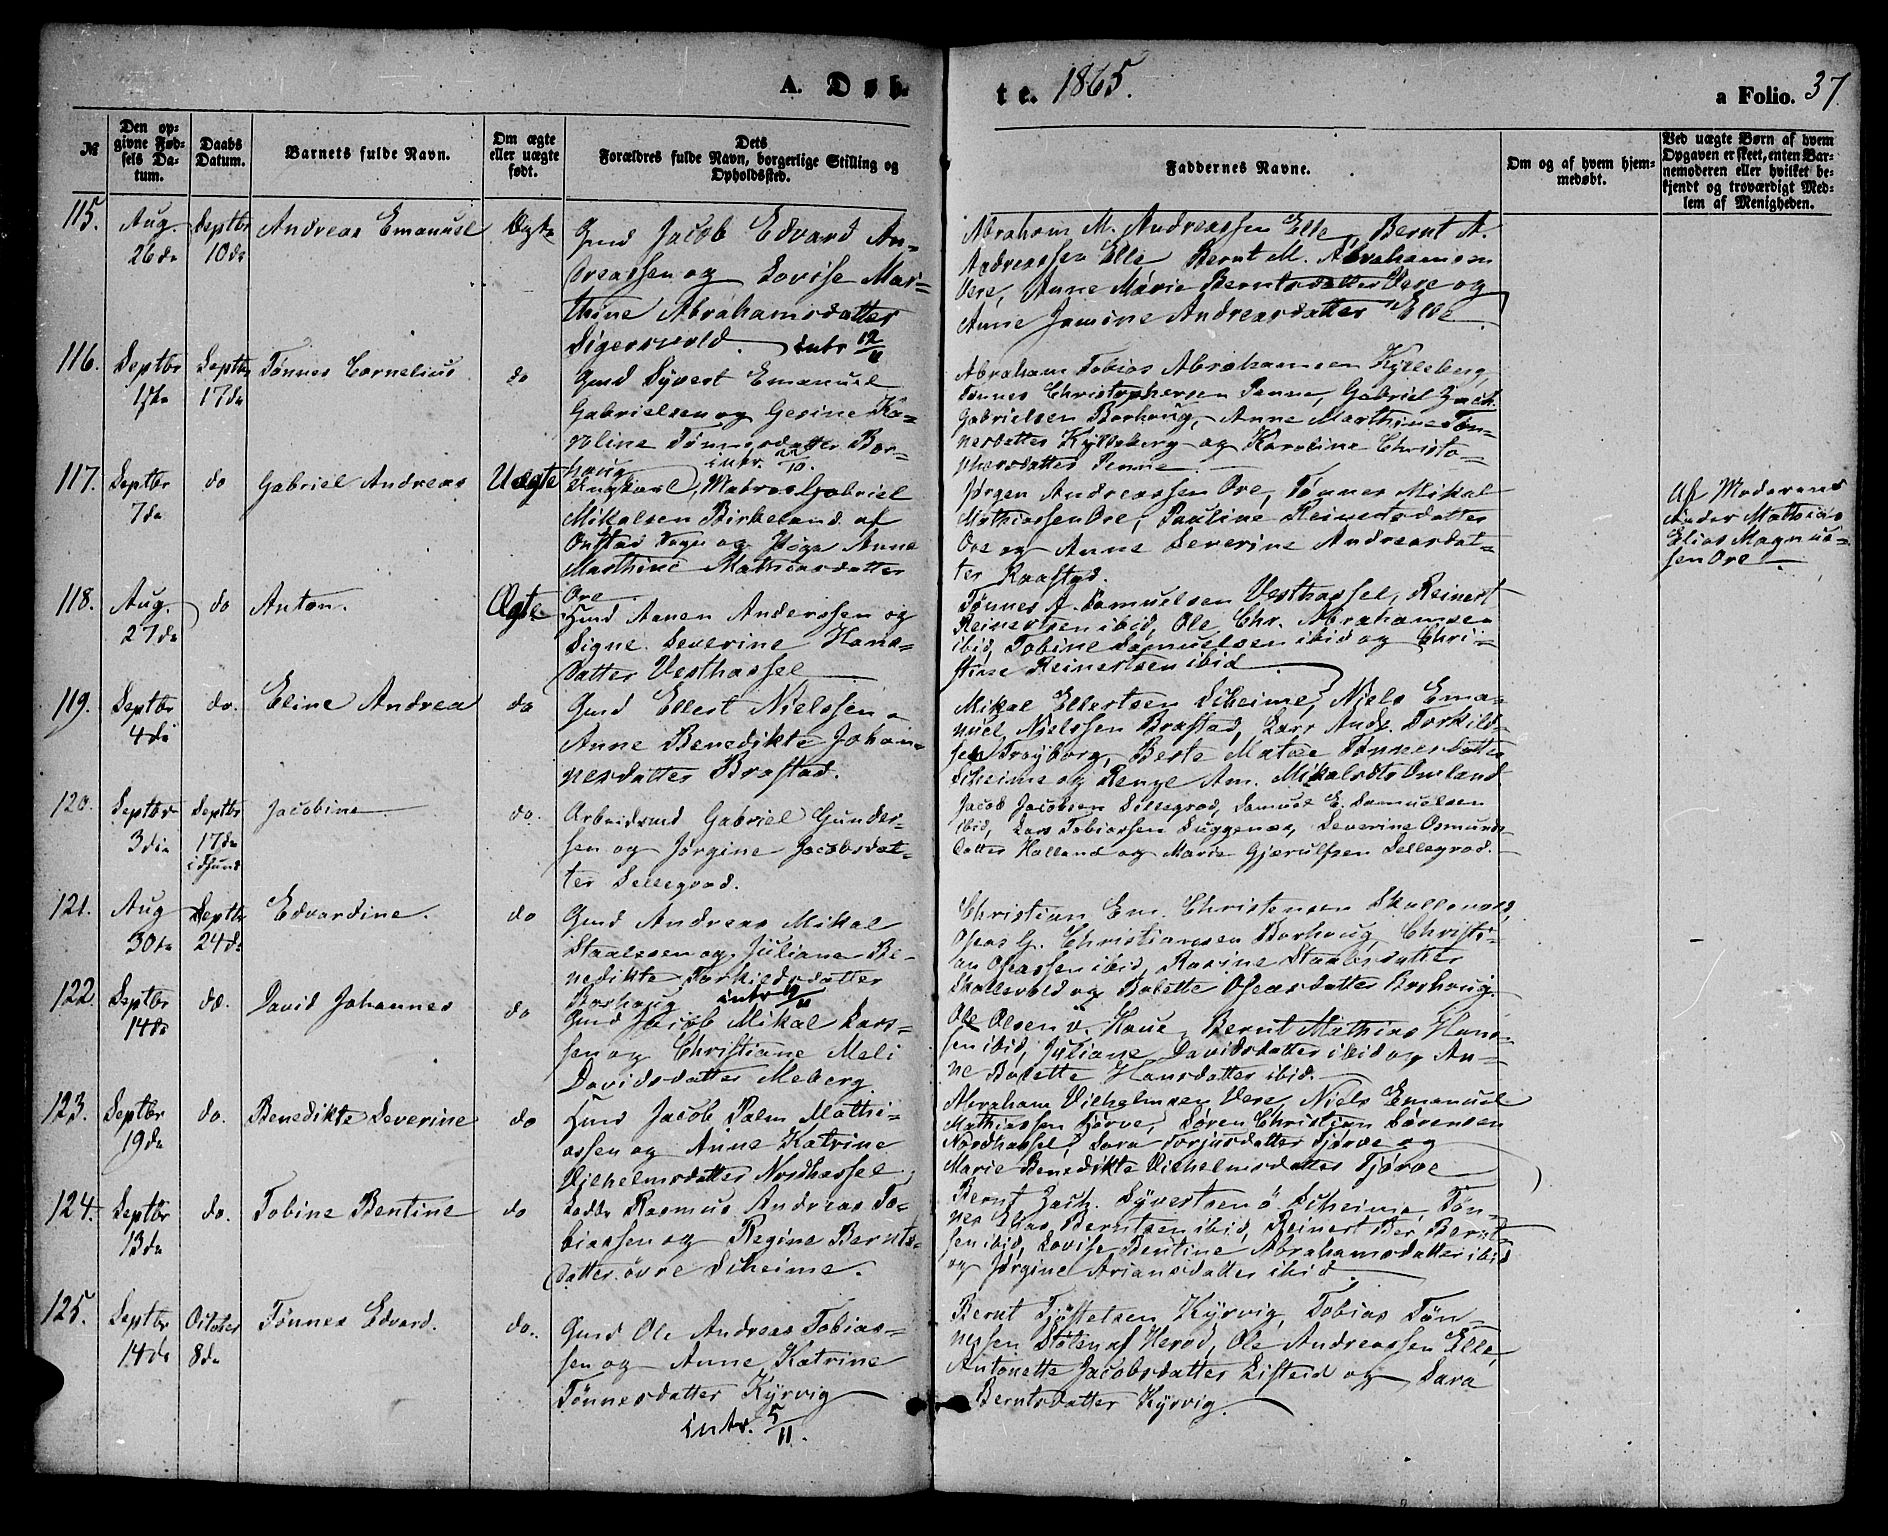 A. Døb-
te. 1865.
a Folio. 37
№
Den op-
givne Fød-
sels Da-
tum.
Daabs
Datum.
Barnets fulde Navn.
Om ægte
eller uægte
født.
Dets
Forældres fulde Navn, borgerlige Stilling og
Opholdssted.
Faddernes Navne.
Om og af hvem hjem-
medøbt.
Ved uægte Børn af hvem
Opgaven er skeet, enten Bar-
nemoderen eller hvilket be-
kjendt og troværdigt Med-
lem af Menigheden.
115.
Aug.
26de
Septbr
10de
Andreas Emanuel
Ægte
Gmd Jacob Edvard An-
dreassen og Lovise Mar-
thine Abrahamsdatter
Sigersvold. intr 12/11
Abraham M. Andreassen Elle, Bernt A.
Andreassen Elle Bernt M. Abrahamsen
Vere, Anne Marie Berntsdatter Vere og
Anne Jomine Andreasdatter Elle.
116.
Septbr
1ste
Septbr
17de
Tønnes Cornelius
do
Gmd Syvert Emanuel
Gabrielsen og Gesine Ka-
roline Tønnesdatter Bor-
houg intr. /10.
Abraham Tobias Abrahamsen Kylleberg,
Tønnes Christophersen Penne, Gabriel Zach.
Gabrielsen Borhoug, Anne Marthine Tøn-
nesdatter Kylleberg og Karoline Christo-
phersdatter Penne.
117.
Septbr
7de
do
Gabriel Andreas
Uægte
Ungkarl, Matros Gabriel
Mikalsen Birkeland af
Onstad Sogn og Pige Anne
Marthine Mathiasdatter
Ore
Jørgen Andreassen Ore, Tønnes Mikal
Mathiassen Ore, Pauline Reinertsdatter
Ore og Anne Severine Andreasdat-
ter Raastad.
Af Moderens
Fader Mathias
Elias Magnus-
sen Ore.
118.
Aug.
27de
do
Anton.
Ægte
Hmd Aanen Anderssen og
Signe Severine Hans-
datter Vesthassel
Tønnes A. Samuelsen Vesthassel, Reinert
Reinertsen ibid, Ole Chr. Abrahamsen
ibid, Tobine Samuelsen ibid og Chri-
stine Reinertsen ibid
119.
Septbr
4de
do.
Eline Andrea
do
Gmd Ellert Nielssen o
Anne Benedikte Johan-
nesdatter Brastad.
Mikal Ellertsen Skeime, Niels Ema-
nuel Nielssen Brastad, Lars Andr. Torkild-
sen Frøyborg, Berte Matee Tønnesdatter
Skeime og Renge Am. Mikalsdtr Omland
120.
Septbr
3die
Septbr
17de
i Sund
Jacobine
do.
Arbeidsmd Gabriel Gunder-
sen og Jørgine Jacobsdat-
ter Sellegrod.
Jacob Jacobsen Sellegrod, Samuel E. Samuelsen
ibid, Lars Tobiassen Duggenæs, Severine Osmunds-
datter Holland og Marie Gjerulfsen Sellegrod.
121.
Aug
30te
Septbr
24de
Edvardine.
do
Gmd Andreas Mikal
Staalesen og Juliane Be-
nedikte Torkildsdatter
Borhoug intr 19/11
Christian Em. Christensen Skollevold,
Oseas G. Christiansen Borhoug, Christi-
an Oseassen ibid, Rasine Staalesdatter
Skollevold og Bolette Oseasdatter Borhoug.
122.
Septbr
14de
do.
David Johannes
do
Gmd Jacob Mikal Lars-
sen og Christiane Meli
Davidsdatter Meberg
Ole Olsen v. Haue, Bernt Mathias Han-
sen ibid, Juliane Davidsdatter ibid og An-
ne Bolette Hansdatter ibid.
123.
Septbr
19de
do.
Benedikte Severine
do
Hmd Jacob Palm Mathi-
assen og Anne Katrine
Vilhelmsdatter Nordhassel
Abraham Vilhelmsen Vere, Niels Emanuel
Mathiassen Tjørve, Søren Christian Sørensen
Nordhassel, Sara Torjusdatter Tjørve og
Marie Benedikte Vilhelmsdatter Tjørve
124.
Septbr
13de
do.
Tobine Bentine
do
Rasmus Andreas To-
biassen og Regine Bernts-
datter øvre Skeime.
Bernt Zach. Syvertsen ø Skeime, Tøn-
nes Elias Berntsen ibid, Reinert Ber Bernt-
sen ibid, Lovise Bentine Abrahamsdatter ibid
og Jørgine Ariansdatter ibid.
125.
Septbr
14de
October
8de
Tønnes Edvard.
do.
Gmd Ole Andreas Tobias-
sen og Anne Katrine
Tønnesdatter Kyrvig
intr. 5/11
Bernt Tjøstelsen Kyrvig, Tobias Tøn-
nessen Støle af Herod, Ole Andreassen Elle,
Antonette Jacobsdatter Eifteid og Sara
Berntsdatter Kyrvig.